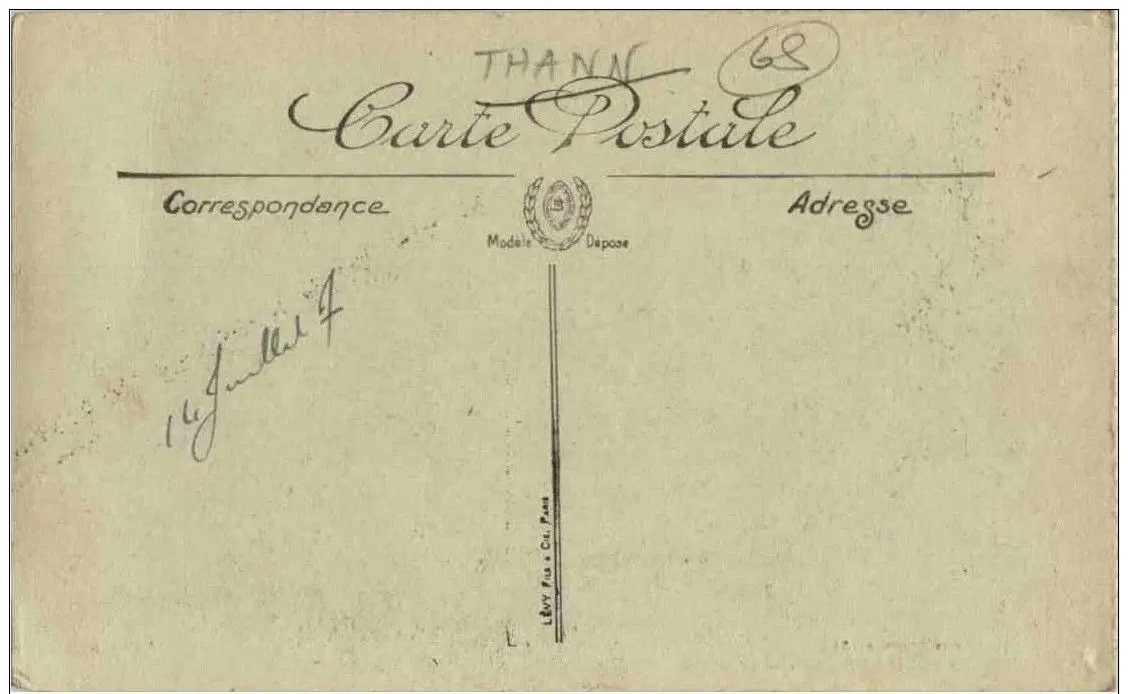 THANN 68
Carte Postale
Correspondance
Adresse
Modèle Déposé
14 Juillet
LÉVY FILS & CIE. PARIS
L.